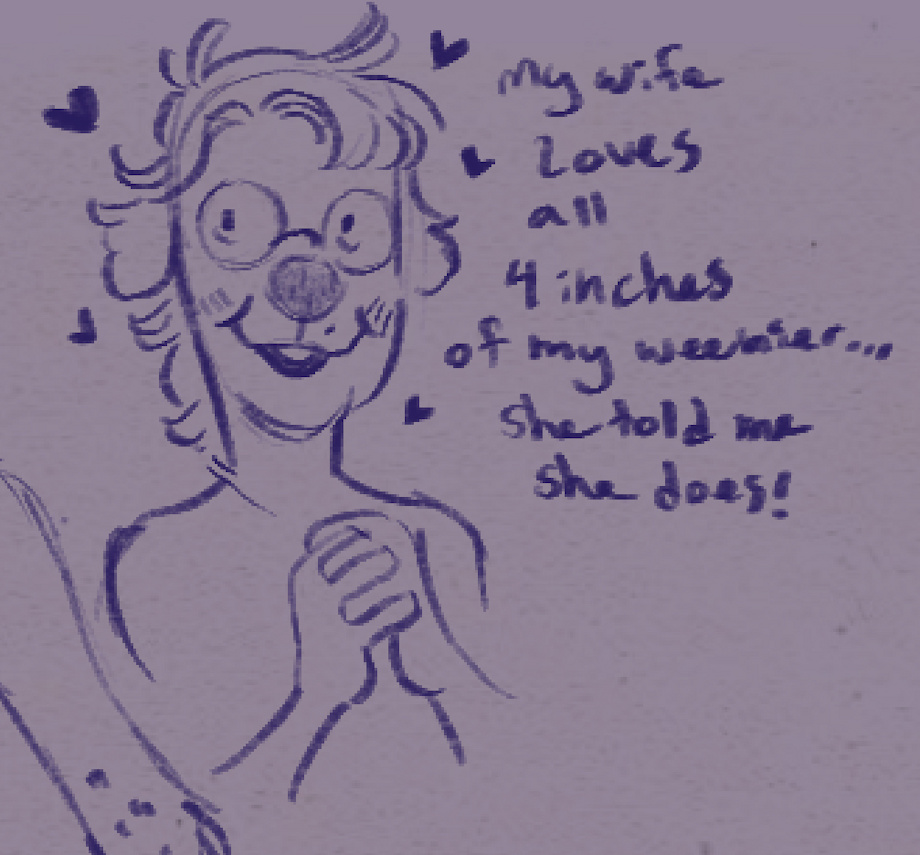 my wife
loves
all
4 inches
of my weenier...
she told me
she does!